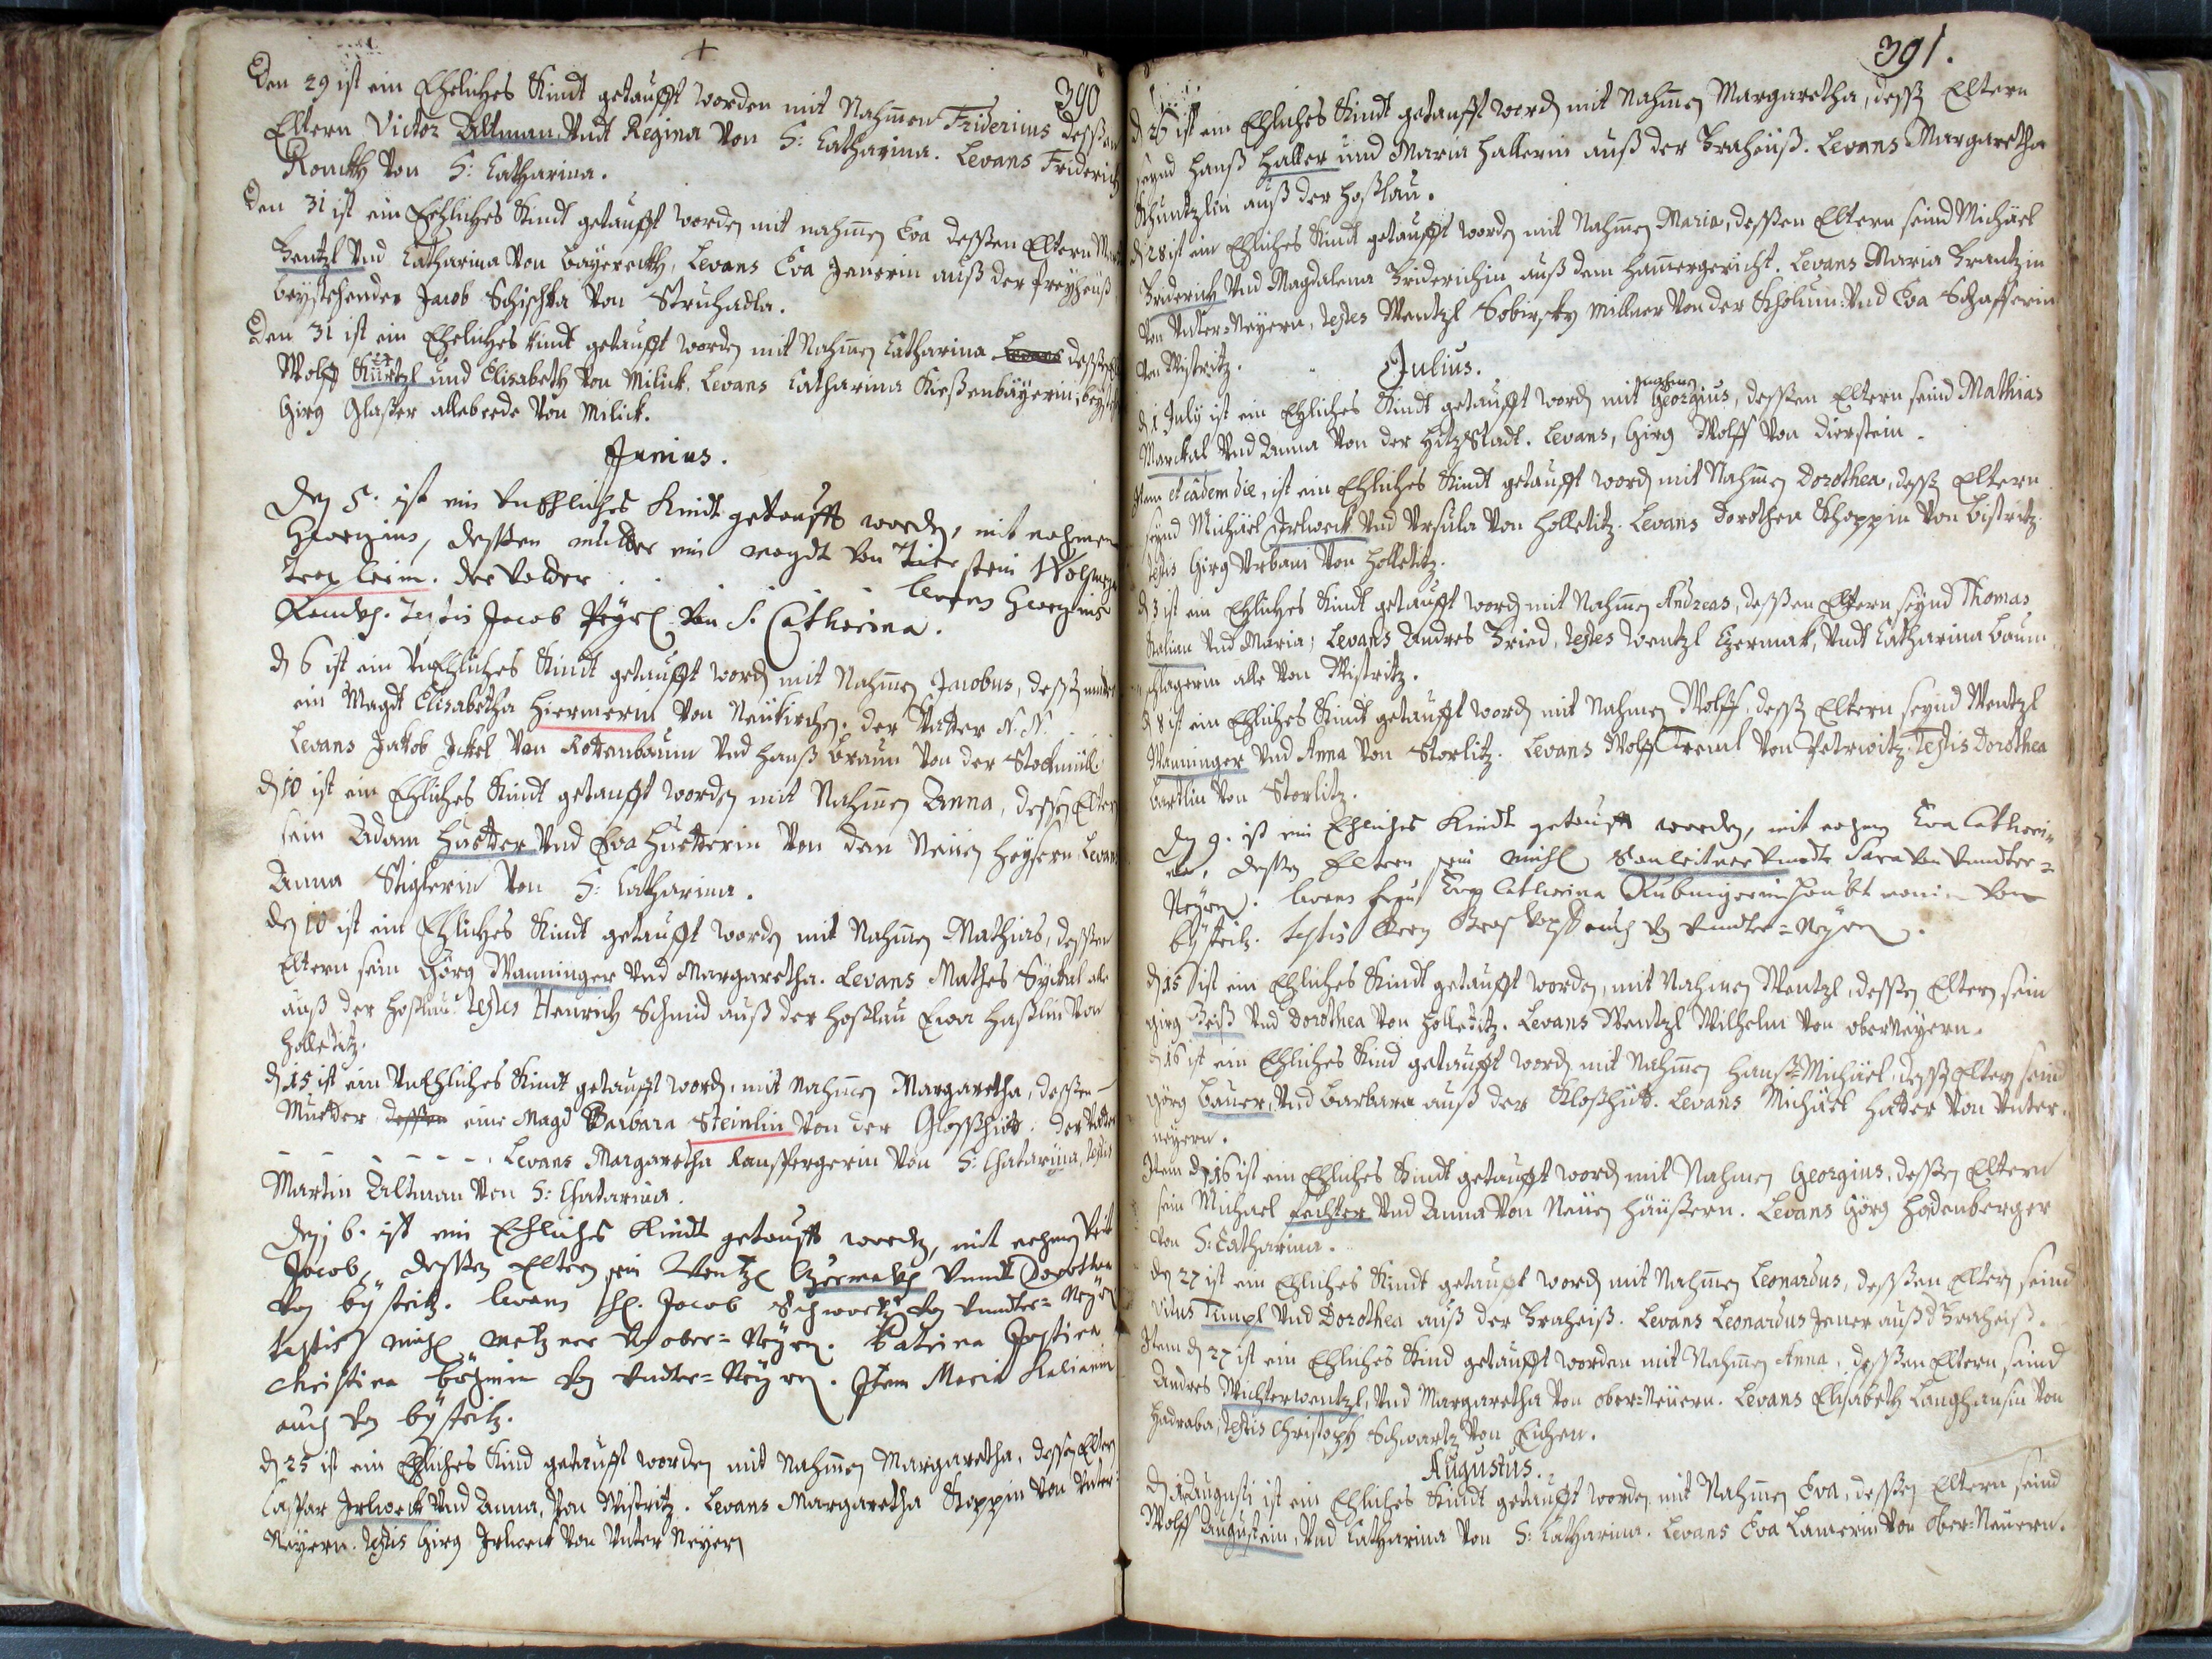 390
Den 29 ist ein Eheliches Kindt getaufft worden mit Nahmen Fridericus dessen
Eltern Victor Altman Vndt Regina von S: Catharina. Levans Friderich
von S: Catharina.
Den 31 ist ein Eheliches Kindt getaufft worden mit nahmen Eva dessen Eltern
Vnd Catharina von Bayereckh, Levans Eva Jenerin auß der freyheüß
beystehender Jacob Schischka von Struhadla.
Den 31 ist ein Eheliches kindt getaufft worden mit Nahmen Catharina dessen
Wolff Kürtzl und Elisabeth von Milick. Levans Catharina
Girg Glaßer allebeede von Milick.
Junius.
Den 5. ist ein vnEhliches Kindt getaufft worden, mit nahmen
Georgius, dessen mutter ein magdt von Tierstein
der Vatter . . . Levans Georgius
Testis Jacob von S. Catherina.
d 6 ist ein VnEhliches Kindt getaufft word mit Nahmen Jacobus, dessen mutter
ein Magdt Elisabetha Hiermerin von Neükirchen. der Vatter N. N.
Levans Jakob Jckel von Rottenbaum Vnd Hanß Braun von der Stockmüll
d 10 ist ein Ehliches Kindt getaufft worden mit Nahmen Anna, dessen Eltern
sein Adam Huetter Vnd Eva Huetterin von den Neüen Heysern Levans
Anna Stiglerin von S: Catharina.
den 10 ist ein Ehliches Kindt getaufft worden mit Nahmen Mathias, dessen
Eltern sein Görg Wanninger Vnd Margaretha. Levans Mathes alle
auß der Hoslau. testes Henrich Schmid auß der Hoßlau Ewa Haßlin von
Holletitz.
d 15 ist ein VnEhliches Kindt getaufft word, mit Nahmen Margaretha, dessen
Muetter dessen eine Magd Barbara Steinlin von der Glosshütt. der Vatter
- - - - - - . Levans Margaretha von S: Chatarina, testis
Martin Altman von S: Chatarina.
Den 16. ist ein Ehliches Kindt getaufft worden, mit nahmen Veit
Jacob, dessen Eltern sein Wentzl Czermakh Vnndt Dorothea
von bÿstritz. Levans H. Jacob Schwartz von Vndter=Neÿrn
testis Michl Metzner von ober=Neÿrn. Justina
Christina Böhmin von Vndter=Neÿrn. Item Maria Kalianin
auch von bÿstritz.
d 25 ist ein Ehliches Kind getaufft worden mit Nahmen Margaretha, dessen Eltern
Caspar Irlweck Vnd Anna, von Wistritz. Levans Margaretha Stoppin von Vnter
Neyern. testis Girg Irlweck von Vnter Neyern
391.
d 26 ist ein Ehliches Kindt getaufft word mit Nahmen Margaretha, dessen Eltern
seynd Hanß Haller und Maria Hallerin auß der Braheüß. Levans Margaretha
Schuntzlin auß der Hoßlau.
d 28 ist ein Ehliches Kindt getaufft worden mit Nahmen Maria, dessen Eltern seind Michäel
Briderich Vnd Magdalena Briderichin auß dem Hamergericht. Levans Maria Brantzin
von Vnter=Neyern, testes Wentzl Sobirsky Millner von der Scholum: Vnd Eva Schafferin
von Wistritz.
Julius.
d 1 July ist ein Ehliches Kindt getaufft word mit nahmen Georgius, dessen Eltern seind Mathias
Marckal Vnd Anna von der Hitzstadt. Levans, Girg Wolff von dierstein.
Item et eâdem die, ist ein Ehliches Kindt getaufft word mit Nahmen Dorothea, dessen Eltern
seynd Michäel Irlweck Vnd Vrsula von Holletitz. Levans Dorothea Schoppin von Bistritz.
testis Girg Vrbani von Holletitz.
d 3 ist ein Ehliches Kindt getaufft word mit Nahmen Andreas, dessen Eltern seynd Thomas
Kalian Vnd Maria; Levans Andres Bried, testes Wentzl Czermak, Vndt Catharina Baum
schlagerin alle von Wistritz.
d 8 ist ein Ehliches Kindt getaufft word mit Nahmen Wolff, dessen Eltern seynd Wentzl
Wanninger Vnd Anna von Storlitz. Levans Wolff Treml von Petrwitz. Testis Dorothea
Bartlin von Storlitz.
Den 9. ist ein Ehliches Kindt getaufft worden, mit nahmen Eva Catheri=
na, dessen Eltern sein Michl Sonleitner Vnndt Sara von Vnndter=
Neÿrn. Levans Frau Eva Catherina von
bÿstritz. testis auch von Vnndter=Neÿrn.
d 15 ist ein Ehliches Kindt getaufft worden, mit Nahmen Wentzl, dessen Eltern sein
Girg Vnd Dorothea von Holletitz. Levans Wentzl Wilhelm von oberNeyern.
d 16 ist ein Ehliches Kind getaufft word mit Nahmen Hanß=Michäel, dessen Eltern seind
Görg Bauer, Vnd Barbara auß der Kloßhütt. Levans Michäel Hatter von Vnter=
neyern.
Item d 16 ist ein Ehliches Kindt getaufft word mit Nahmen Georgius, dessen Eltern
sein Michael Fechter Vnd Anna von Neüen Häüßern. Levans Görg Hodenberger
von S: Catharina.
den 27 ist ein Ehliches Kindt getaufft word mit Nahmen Leonardus, dessen Eltern seind
Vitus Timpl Vnd Dorothea auß der Braheiß. Levans Leonardus Jener auß d Braheiß.
Item d 27 ist ein Ehliches Kind getaufft worden mit Nahmen Anna, dessen Eltern seind
Andres Wichterwentzl, Vnd Margaretha von ober=Neüern. Levans Elisabeth Langhansin von
Hadraba, testis Christoph Schwartz von Eichen.
Augustus.
d 1 Augusti ist ein Ehliches Kindt getaufft worden mit Nahmen Eva, dessen Eltern seind
Wolff Augustein, Vnd Catharina von S: Catharina. Levans Eva Lamerin von Ober=Neuern.